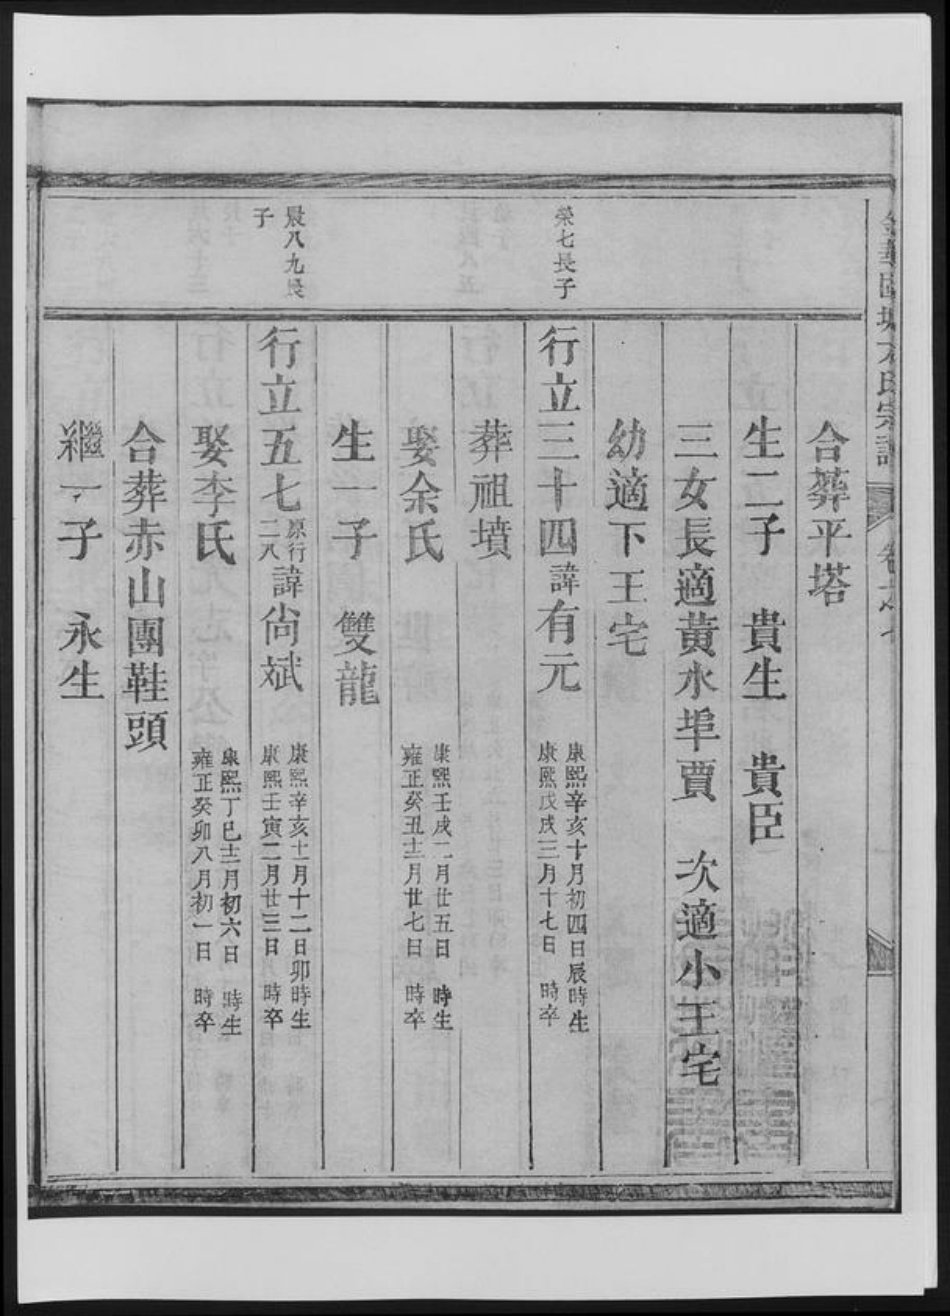 合葬平塔
生二子 貴生 貴臣
三女長適黃水埠賈 次適小王宅
幼適下王宅
榮七長子
行立三十四諱有元
康熙辛亥十月初四日辰時生
康熙戊戌三月十七日 時卒
葬祖墳
娶余氏
康熙壬戌二月廿五日 時生
雍正癸丑十二月廿七日 時卒
生一子 雙龍
八九長
子
行立五七原行二八諱尙斌
康熙辛亥十一月十二日卯時生
康熙壬寅二月廿三日 時卒
娶李氏
康熙丁巳十二月初六日 時生
雍正癸卯八月初一日 時卒
合葬赤山團鞋頭
繼一子 永生